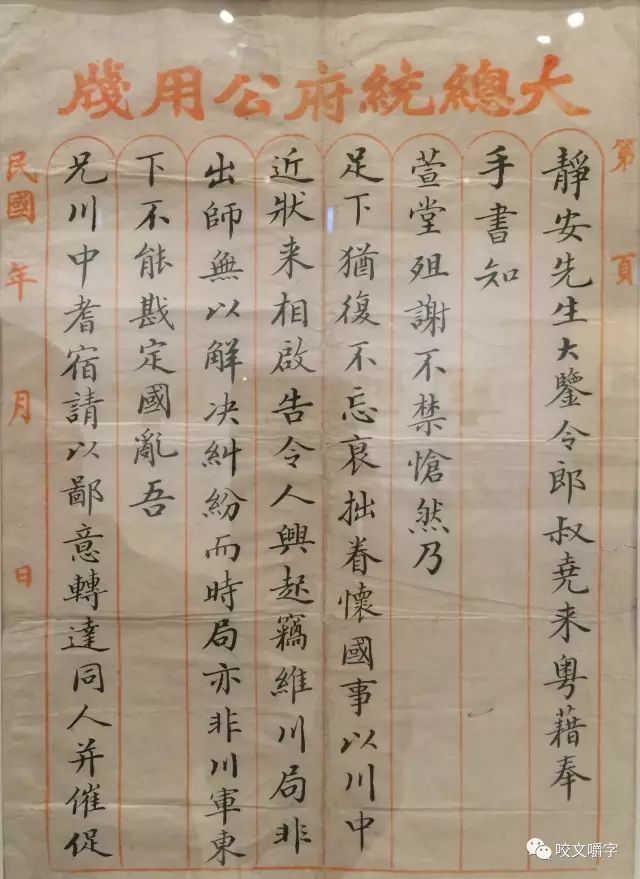 大總統府公用牋
第 頁
靜安先生大鑒令郎叔堯来粵藉奉
手書知
萱堂殂謝不禁愴然乃
足下猶復不忘衰拙眷懷國事以川中
近狀来相啟告令人興起竊維川局非
出師無以解决糾紛而時局亦非川軍東
下不能戡定國亂吾
兄川中耆宿請以鄙意轉達同人并催促
民國 年 月 日
咬文嚼字